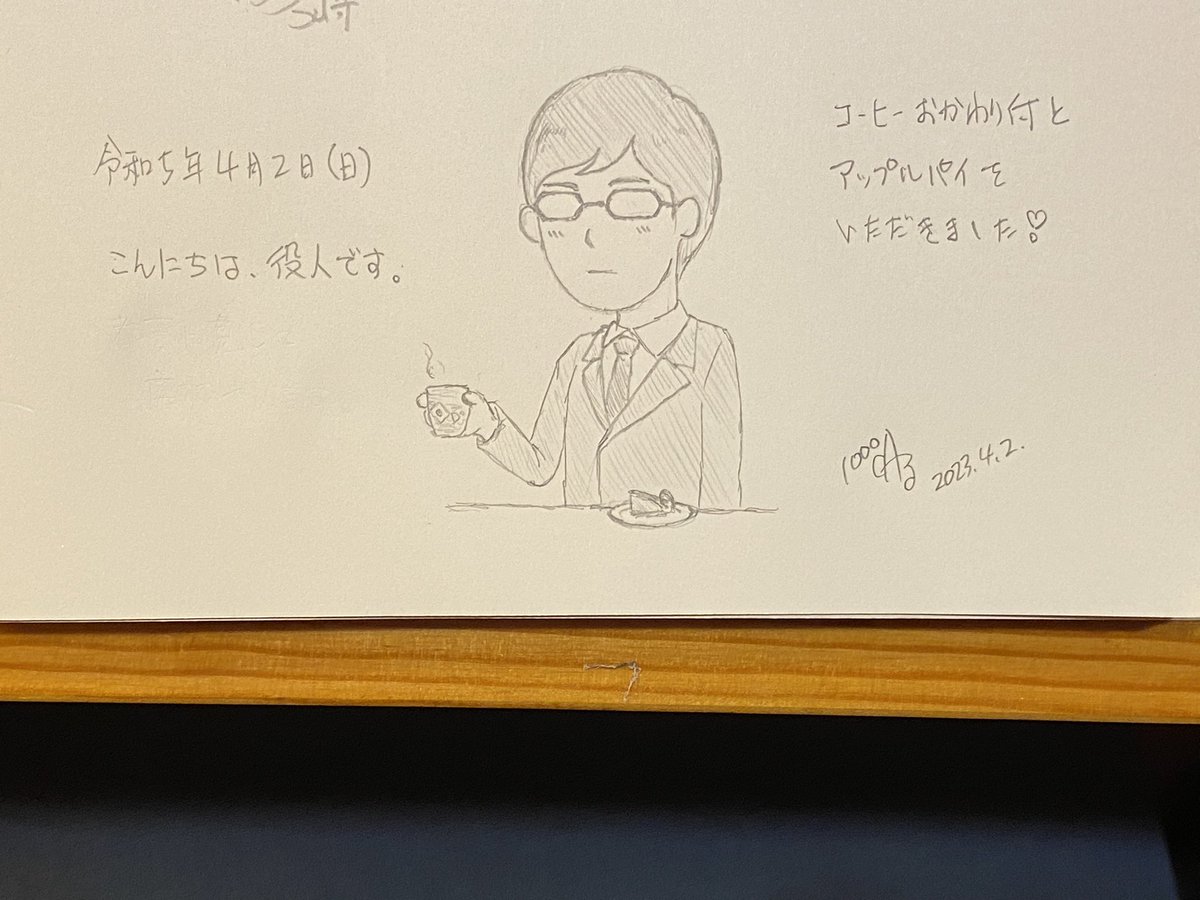 令和5年4月2日(日)
こんにちは、役人です。
コーヒーおかわり付と
アップルパイを
いただきました!
2023.4.2.